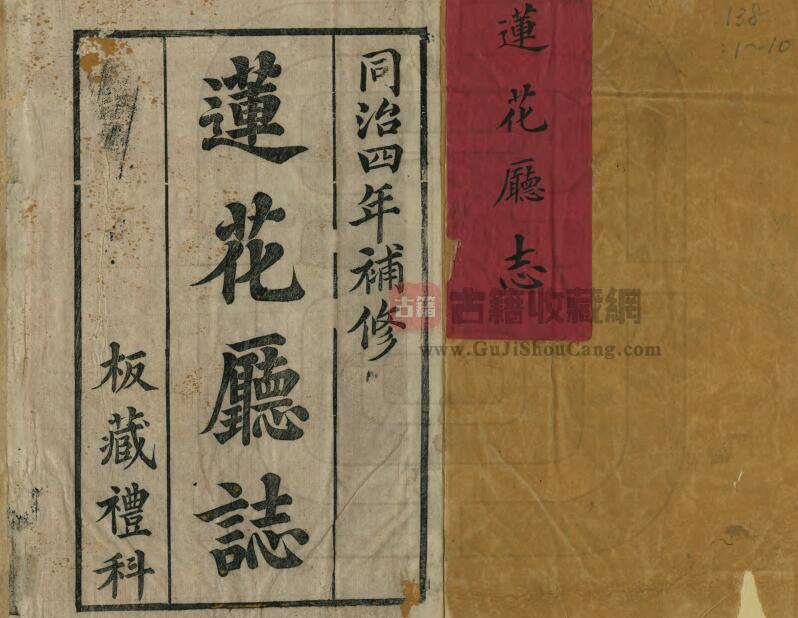 138
:1~10
蓮花廳志
同治四年補修
蓮花廳誌
板藏禮科
古籍 古籍收藏網
www.GuJiShouCang.com